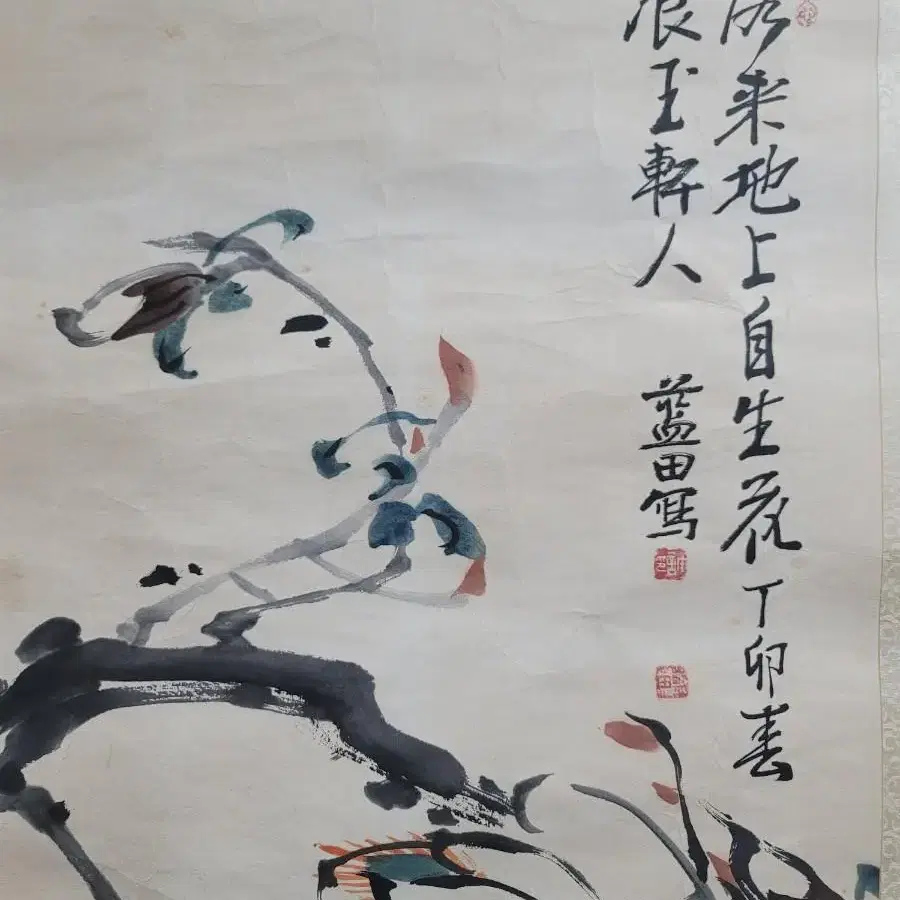 來地上自生花丁卯春
浪玉軒人
藍田寫